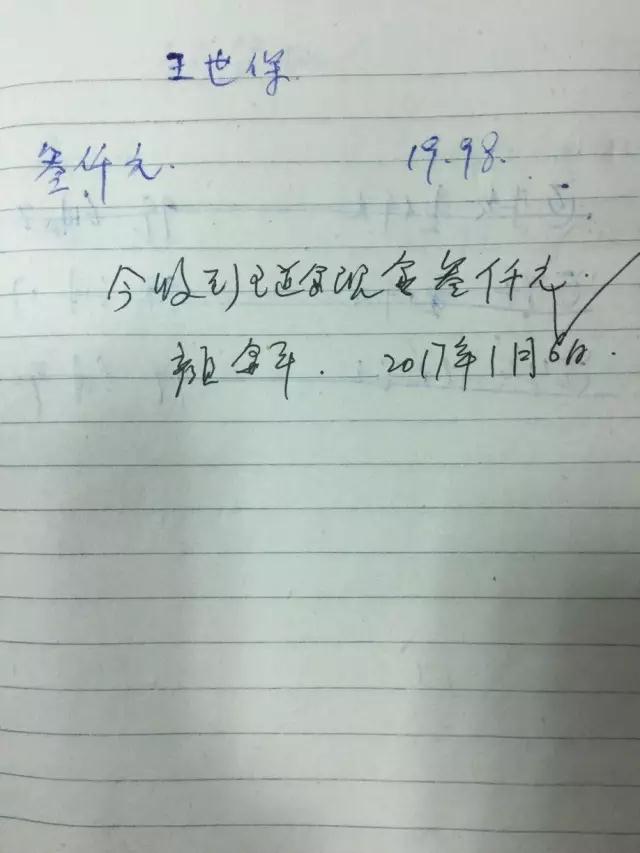 王世保
叁仟元. 19.98.
今收到王道金现金叁仟元.
颜金平. 2017年1月6日.